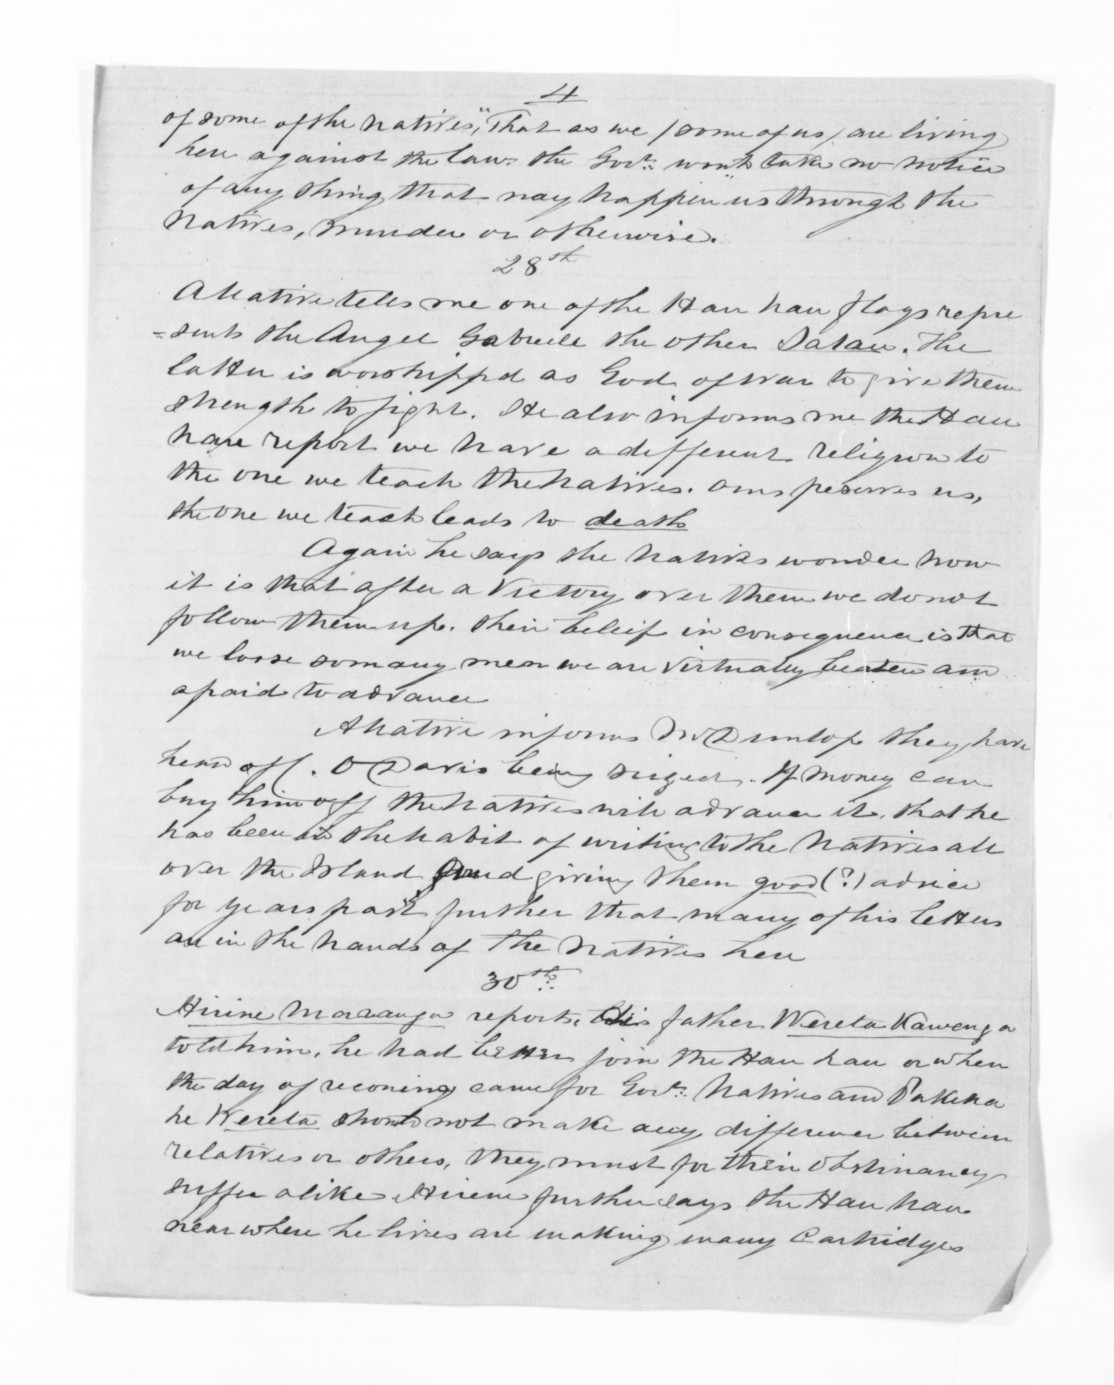 4
of some of the natives, "That as we (some of us) are living
here against the law. the Govt. wont take no notice
of any thing that may happen" us through the
Natives, murder or otherwise.
28th
A Native tells me one of the Hau hau flags repre
=sents the Angel Gabriele the other Satan. The
latter is worshippd as God of war to give them
strength to fight. He also informs me the Hau
hau report we have a different religion to
the one we teach the Natives. ours preserves us,
the one we teach leads to death
Again he says the natives wonder how
it is that after a Victory over them we do not
follow them up. their beleif in consequence is that
we loose so many men we are virtually beaten and
afraid to advance
A Native informs Mr Dunlop they have
heard of C. O Davis being siezed. If money can
buy him off the Natives will advance it. that he
has been in the habit of writing to the Natives all
over the Island and giving them good (?) advice
for years past further that many of his letters
are in the hands of the Natives here
30th:
Hirine Maranga reports, His father Wereta Kawenga
told him, he had better join the Hau hau or when
the day of reconing came for Govt: Natives and Pakeha
he Wereta should not make any difference between
relatives or others, they must for their obstinancy
suffer alike. Hirene further says the Hau hau
near where he lives are making many Cartridges